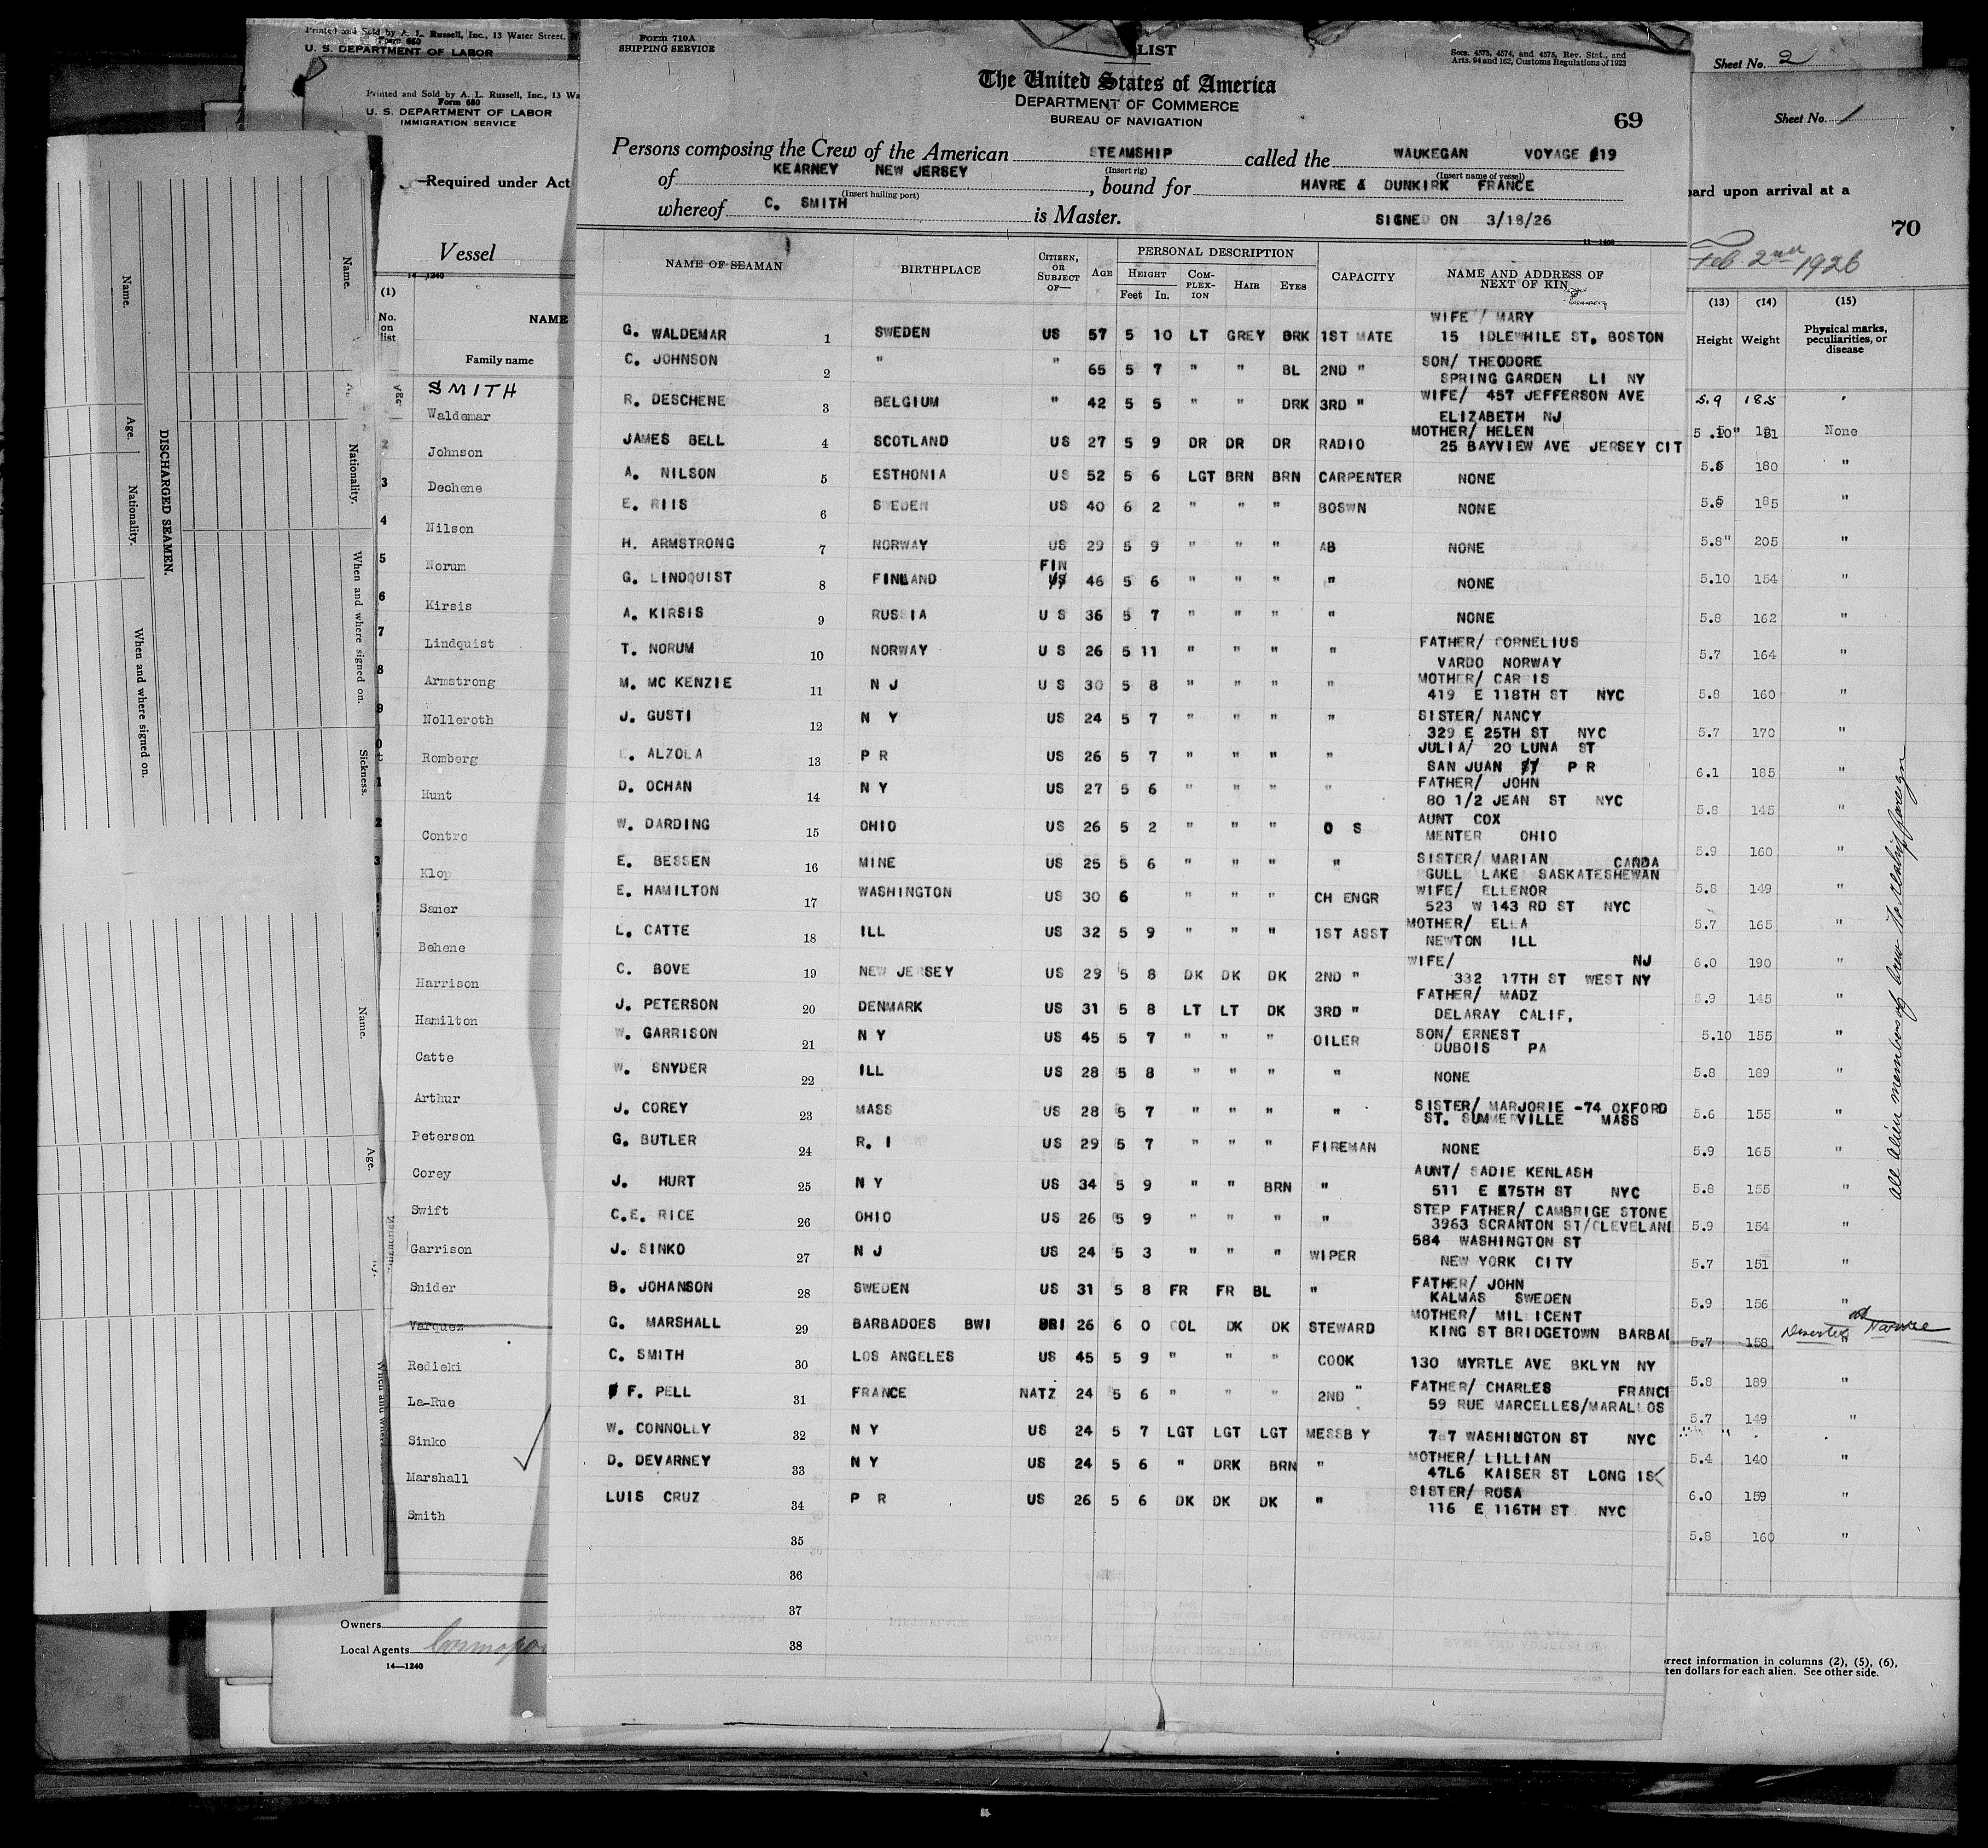 Printed and Sold by A. L. Russell, Inc., 13 Water Street,
Form 680
U. S. DEPARTMENT OF LABOR
Printed and Sold by A. L. Russell, Inc., 13 Wa
Form 680
U. S. DEPARTMENT OF LABOR
IMMIGRATION SERVICE
Required under Act
Vessel
14—1240
(1)
No. on list
NAME
Family name
SMITH
Waldemar
2 Johnson
3 Dechene
4 Nilson
5 Norum
6 Kirsis
7 Lindquist
8 Armstrong
9 Nolleroth
0 Romberg
1 Hunt
2 Contro
3 Klop
Saner
Behene
Harrison
Hamilton
Catte
Arthur
Peterson
Corey
Swift
Garrison
Snider
Varquez
Redieki
La-Rue
Sinko
Marshall
Smith
Owners
Local Agents
14—1240
DISCHARGED SEAMEN.
Name.
Age.
Nationality.
When and where signed on.
Name.
Nationality.
When and where signed on.
Sickness.
Name.
Age.
Form 710A
SHIPPING SERVICE
LIST
Secs. 4573, 4574, and 4575, Rev. Stat., and
Arts. 94 and 162, Customs Regulations of 1923
The United States of America
DEPARTMENT OF COMMERCE
BUREAU OF NAVIGATION
69
Persons composing the Crew of the American STEAMSHIP called the WAUKEGAN VOYAGE #19
(Insert rig) (Insert name of vessel)
of KEARNEY NEW JERSEY, bound for HAVRE & DUNKIRK FRANCE
(Insert hailing port)
whereof C. SMITH is Master. SIGNED ON 3/18/26
11—1400
NAME OF SEAMAN BIRTHPLACE CITIZEN, OR SUBJECT OF— AGE PERSONAL DESCRIPTION CAPACITY NAME AND ADDRESS OF NEXT OF KIN
HEIGHT Feet In. COMPLEXION HAIR EYES
WIFE / MARY
G. WALDEMAR 1 SWEDEN US 57 5 10 LT GREY BRK 1ST MATE 15 IDLEWHILE ST. BOSTON
C. JOHNSON 2 " " 65 5 7 " " BL 2ND " SON/ THEODORE
SPRING GARDEN LI NY
R. DESCHENE 3 BELGIUM " 42 5 5 " " DRK 3RD " WIFE/ 457 JEFFERSON AVE
ELIZABETH NJ
JAMES BELL 4 SCOTLAND US 27 5 9 DR DR DR RADIO MOTHER/ HELEN
25 BAYVIEW AVE JERSEY CIT
A. NILSON 5 ESTHONIA US 52 5 6 LGT BRN BRN CARPENTER NONE
E. RIIS 6 SWEDEN US 40 6 2 " " " BOSWN NONE
H. ARMSTRONG 7 NORWAY US 29 5 9 " " " AB NONE
FIN
G. LINDQUIST 8 FINLAND US 46 5 6 " " " " NONE
A. KIRSIS 9 RUSSIA U S 36 5 7 " " " " NONE
T. NORUM 10 NORWAY U S 26 5 11 " " " " FATHER/ CORNELIUS
VARDO NORWAY
M. MC KENZIE 11 N J U S 30 5 8 " " " " MOTHER/ CARRIS
419 E 118TH ST NYC
J. GUSTI 12 N Y US 24 5 7 " " " " SISTER/ NANCY
329 E 25TH ST NYC
E. ALZOLA 13 P R US 26 5 7 " " " " JULIA/ 20 LUNA ST
SAN JUAN P R
D. OCHAN 14 N Y US 27 5 6 " " " " FATHER/ JOHN
80 1/2 JEAN ST NYC
W. DARDING 15 OHIO US 26 5 2 " " " O S AUNT COX
MENTER OHIO
E. BESSEN 16 MINE US 25 5 6 " " " " SISTER/ MARIAN CANDA
GULL LAKE SASKATESHEWAN
E. HAMILTON 17 WASHINGTON US 30 6 " " " CH ENGR WIFE/ ELLENOR
523 W 143 RD ST NYC
L. CATTE 18 ILL US 32 5 9 " " " 1ST ASST MOTHER/ ELLA
NEWTON ILL
C. BOVE 19 NEW JERSEY US 29 5 8 DK DK DK 2ND " WIFE/ NJ
332 17TH ST WEST NY
J. PETERSON 20 DENMARK US 31 5 8 LT LT DK 3RD " FATHER/ MADZ
DELARAY CALIF,
W. GARRISON 21 N Y US 45 5 7 " " " OILER SON/ ERNEST
DUBOIS PA
W. SNYDER 22 ILL US 28 5 8 " " " " NONE
J. COREY 23 MASS US 28 5 7 " " " " SISTER/ MARJORIE -74 OXFORD
ST. SUMMERVILLE MASS
G. BUTLER 24 R. I US 29 5 7 " " " FIREMAN NONE
J. HURT 25 N Y US 34 5 9 " " BRN " AUNT/ SADIE KENLASH
511 E 175TH ST NYC
C.E. RICE 26 OHIO US 26 5 9 " " " " STEP FATHER/ CAMBRIGE STONE
3963 SCRANTON ST/CLEVELAND
J. SINKO 27 N J US 24 5 3 " " " WIPER 584 WASHINGTON ST
NEW YORK CITY
B. JOHANSON 28 SWEDEN US 31 5 8 FR FR BL " FATHER/ JOHN
KALMAS SWEDEN
G. MARSHALL 29 BARBADOES BWI BRI 26 6 0 COL DK DK STEWARD MOTHER/ MILICENT
KING ST BRIDGETOWN BARBAD
C. SMITH 30 LOS ANGELES US 45 5 9 " " " COOK 130 MYRTLE AVE BKLYN NY
F. PELL 31 FRANCE NATZ 24 5 6 " " " 2ND " FATHER/ CHARLES FRANCE
59 RUE MARCELLES/MARALLOS
W. CONNOLLY 32 N Y US 24 5 7 LGT LGT LGT MESSB Y 767 WASHINGTON ST NYC
D. DEVARNEY 33 N Y US 24 5 6 " DRK BRN " MOTHER/ LILLIAN
47L6 KAISER ST LONG IS
LUIS CRUZ 34 P R US 26 5 6 DK DK DK " SISTER/ ROSA
116 E 116TH ST NYC
35
36
37
38
Sheet No. 2
Sheet No. 1
oard upon arrival at a
70
Feb. 2nd 1926
(13) (14) (15)
Height Weight Physical marks, peculiarities, or disease
5.9 185 "
5.10" 181 None
5.6 180 "
5.8 185 "
5.8" 205 "
5.10 154 "
5.8 162 "
5.7 164 "
5.8 160 "
5.7 170 "
6.1 185 "
5.8 145 "
5.9 160 "
5.8 149 "
5.7 165 "
6.0 190 "
5.9 145 "
5.10 155 "
5.8 189 "
5.6 155 "
5.9 165 "
5.8 155 "
5.9 154 "
5.7 151 "
5.9 156 "
5.7 158 " Deserted at Havre
5.8 189 "
5.7 149 "
5.4 140 "
6.0 159 "
5.8 160 "
all alien members of crew to reship foreign
rrect information in columns (2), (5), (6),
ten dollars for each alien. See other side.